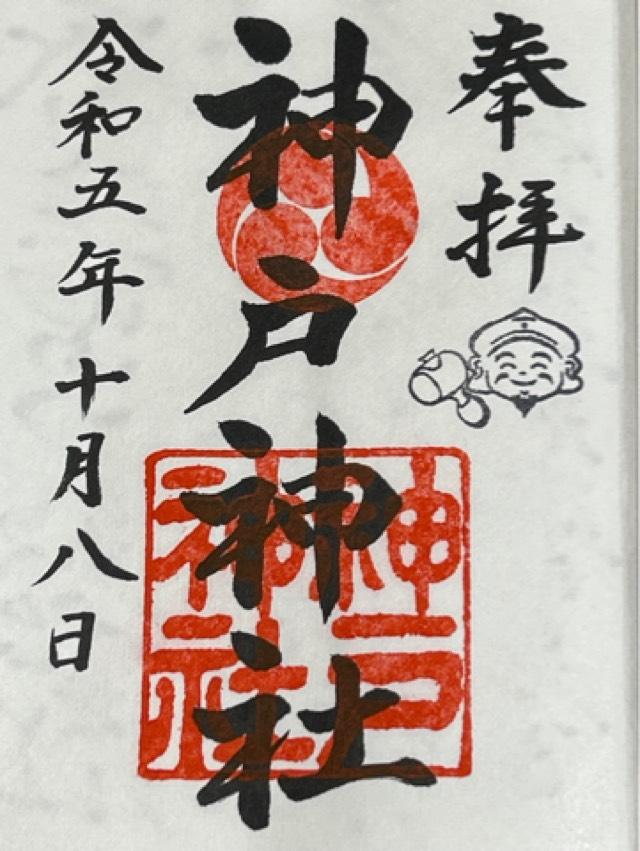 奉拝
神戸神社
神戸神社
令和五年十月八日